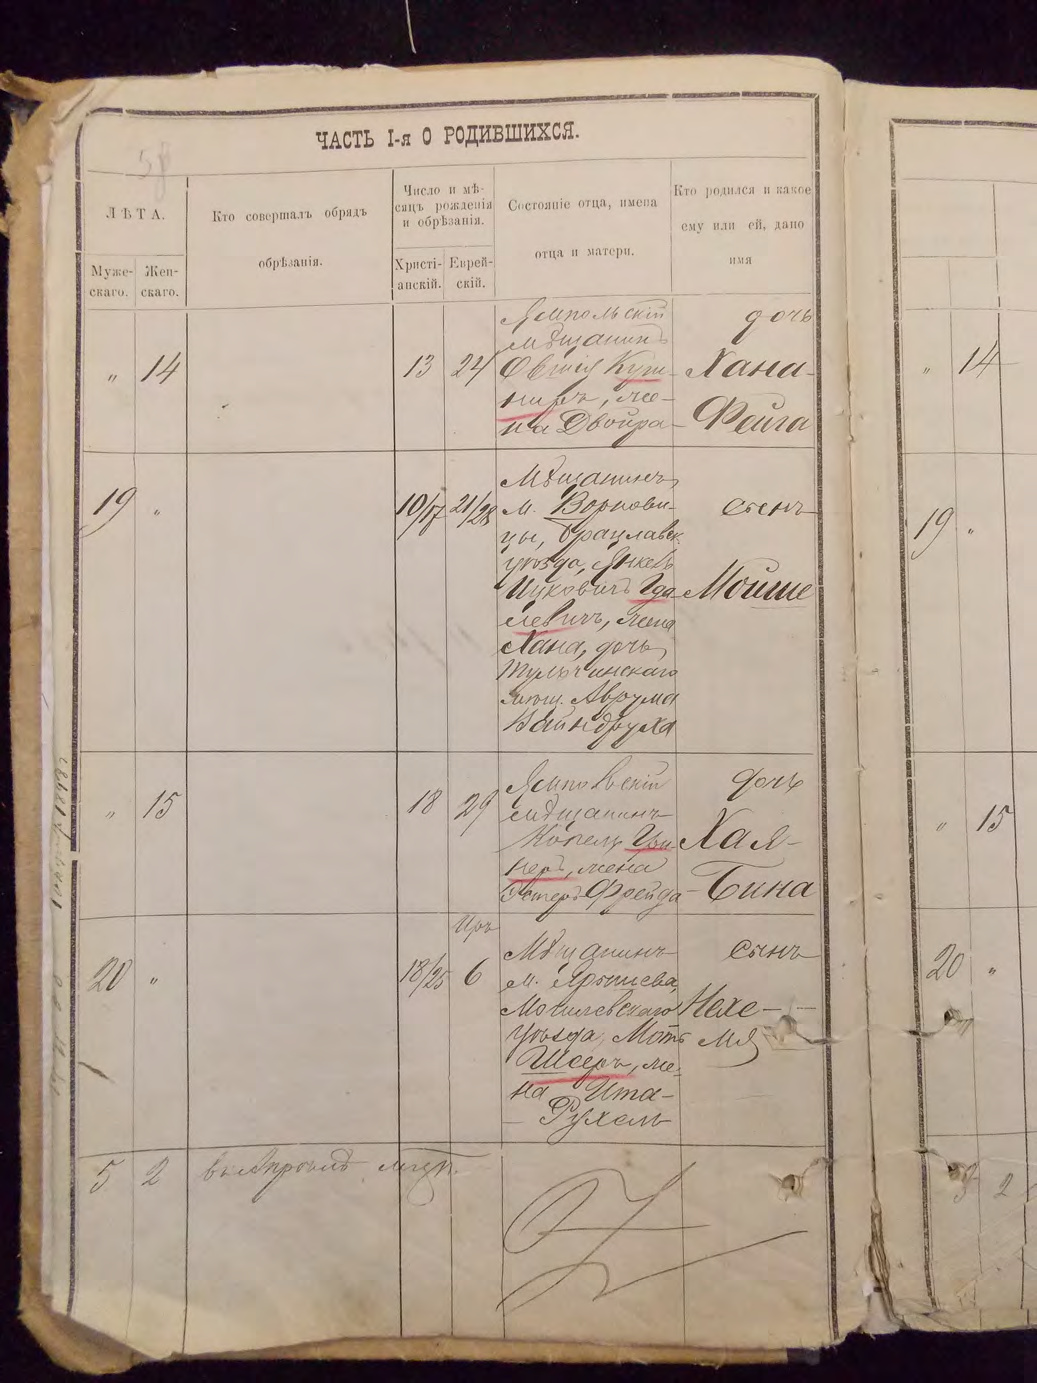 58
ЧАСТЬ I-я О РОДИВШИХСЯ.
ЛѢТА.
Муже-
скаго.
Жен-
скаго.
Кто совершалъ обрядъ
обрѣзанія.
Число и мѣ-
сяцъ рожденія
и обрѣзанія.
Христі-
анскій.
Еврей-
скій.
Состояніе отца, имена
отца и матери.
Кто родился и какое
ему или ей, дано
имя
" 14 13 24
Ямпольскій
мѣщанинъ
Овшія Куш-
ниръ, же-
на Двойра
дочь
Хана-
Фейга
19 " 10/17 21/28
Мѣщанинъ
м. Ворнови-
цы, Брацлавск.
уѣзда, Янкель
Ицковичъ Гда
левичъ, жена
Хана, дочь
Тульчинскаго
мѣщ. Аврума
Вайндруха
сынъ
Мойше
" 15 18 29
Ямпольскій
мѣщанинъ
Копель
неръ, жена
Эстеръ Фрейда
дочь
Хая-
Бина
20 " 18/25 Иръ 6
Мѣщанинъ
м. Ярышева
Могилевскаго
уѣзда, Моть
Шееръ, же-
на Ита-
Рухель
сынъ
Нехе-
мя
5 2
14
19 "
" 15
20 "
2